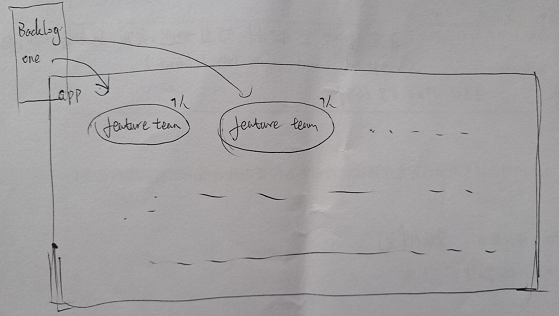 Backlog
one
app
9人
feature team
9人
feature team